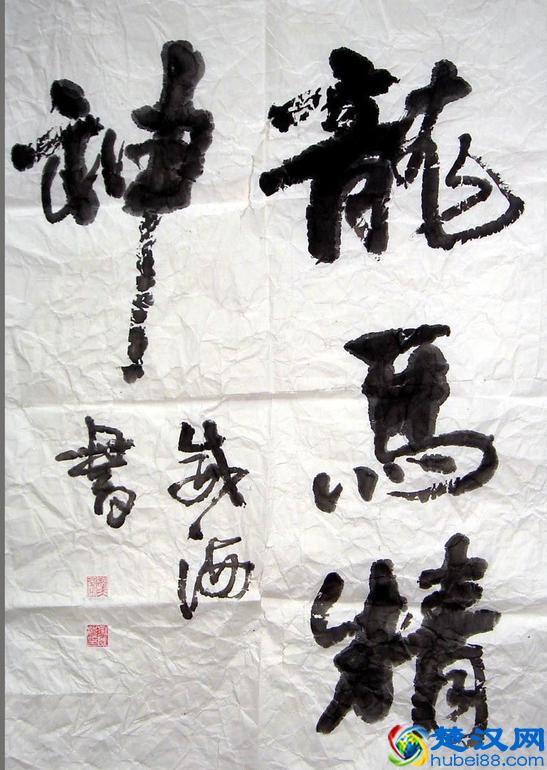 龍馬精
神
海
書
楚汉网
hubei88.com